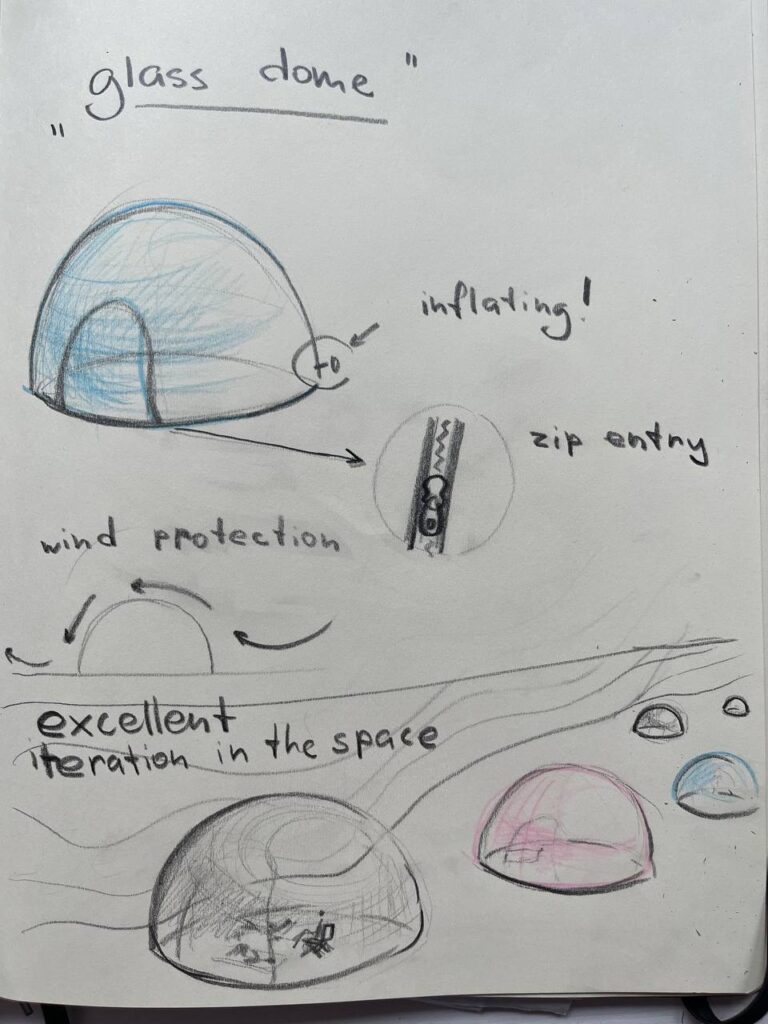 „glass dome"
inflating!
zip entry
wind protection
excellent
iteration in the space